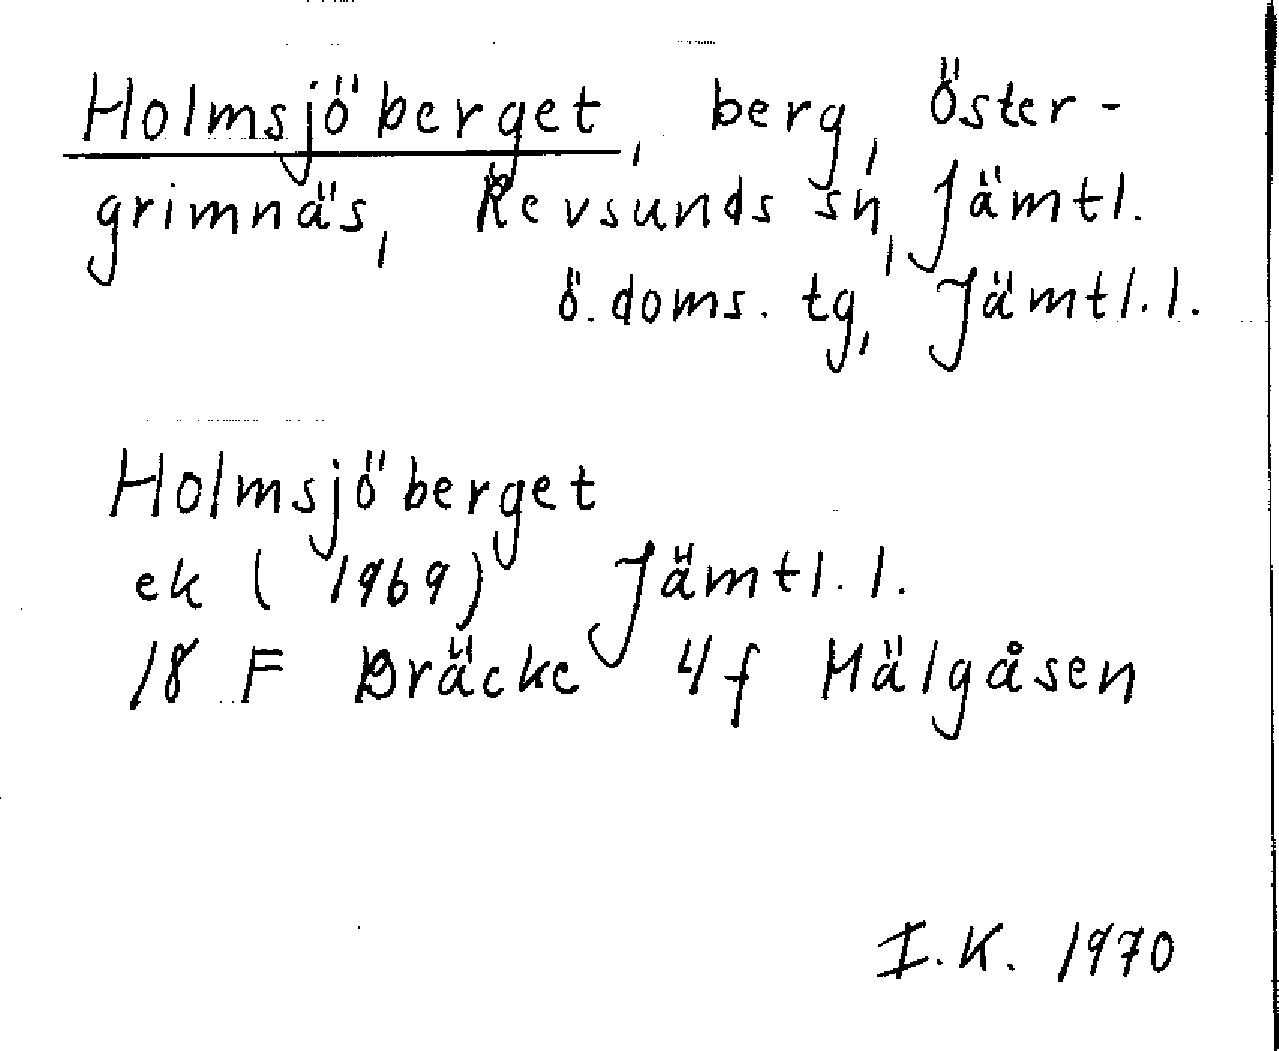 Holmsjöberget, berg, Öster-
grimnäs, Revsunds sn, Jämtl.
ö. doms. tg, Jämtl. l.
Holmsjöberget
ek (1969) Jämtl. l.
18 F Bräcke 4f Hälgåsen
I.K. 1970